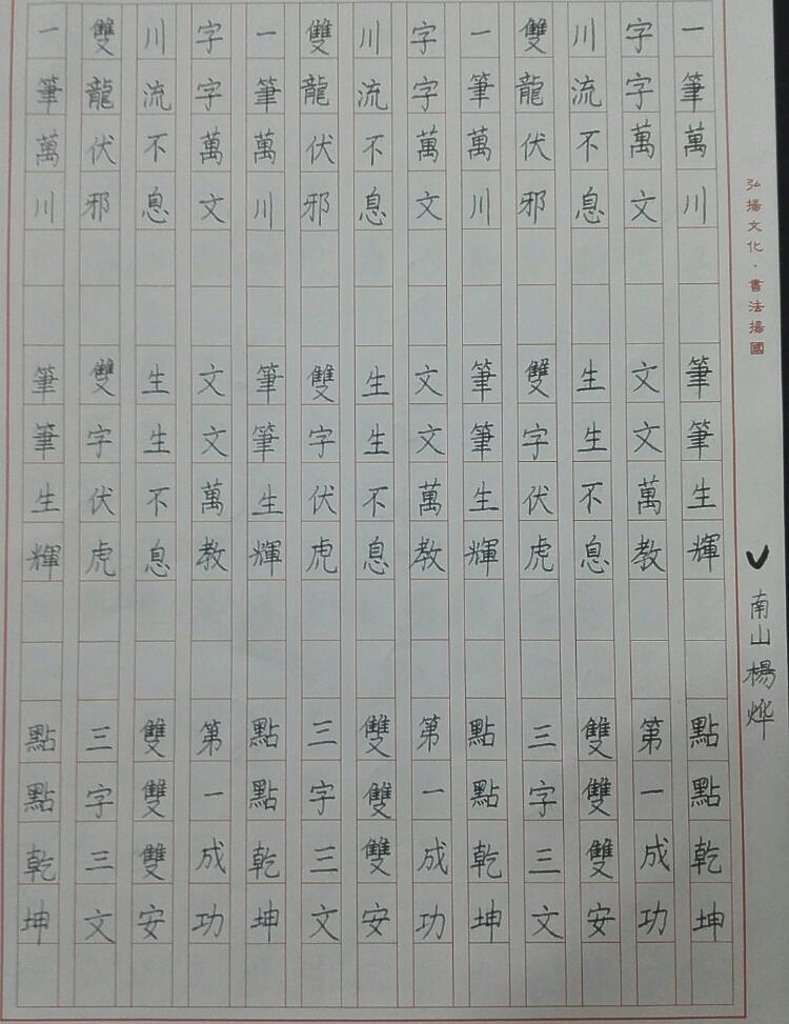 弘揚文化·書法揚國
南山楊烨
一筆萬川 筆筆生輝 點點乾坤
字字萬文 文文萬教 第一成功
川流不息 生生不息 雙雙雙安
雙龍伏邪 雙字伏虎 三字三文
一筆萬川 筆筆生輝 點點乾坤
字字萬文 文文萬教 第一成功
川流不息 生生不息 雙雙雙安
雙龍伏邪 雙字伏虎 三字三文
一筆萬川 筆筆生輝 點點乾坤
字字萬文 文文萬教 第一成功
川流不息 生生不息 雙雙雙安
雙龍伏邪 雙字伏虎 三字三文
一筆萬川 筆筆生輝 點點乾坤